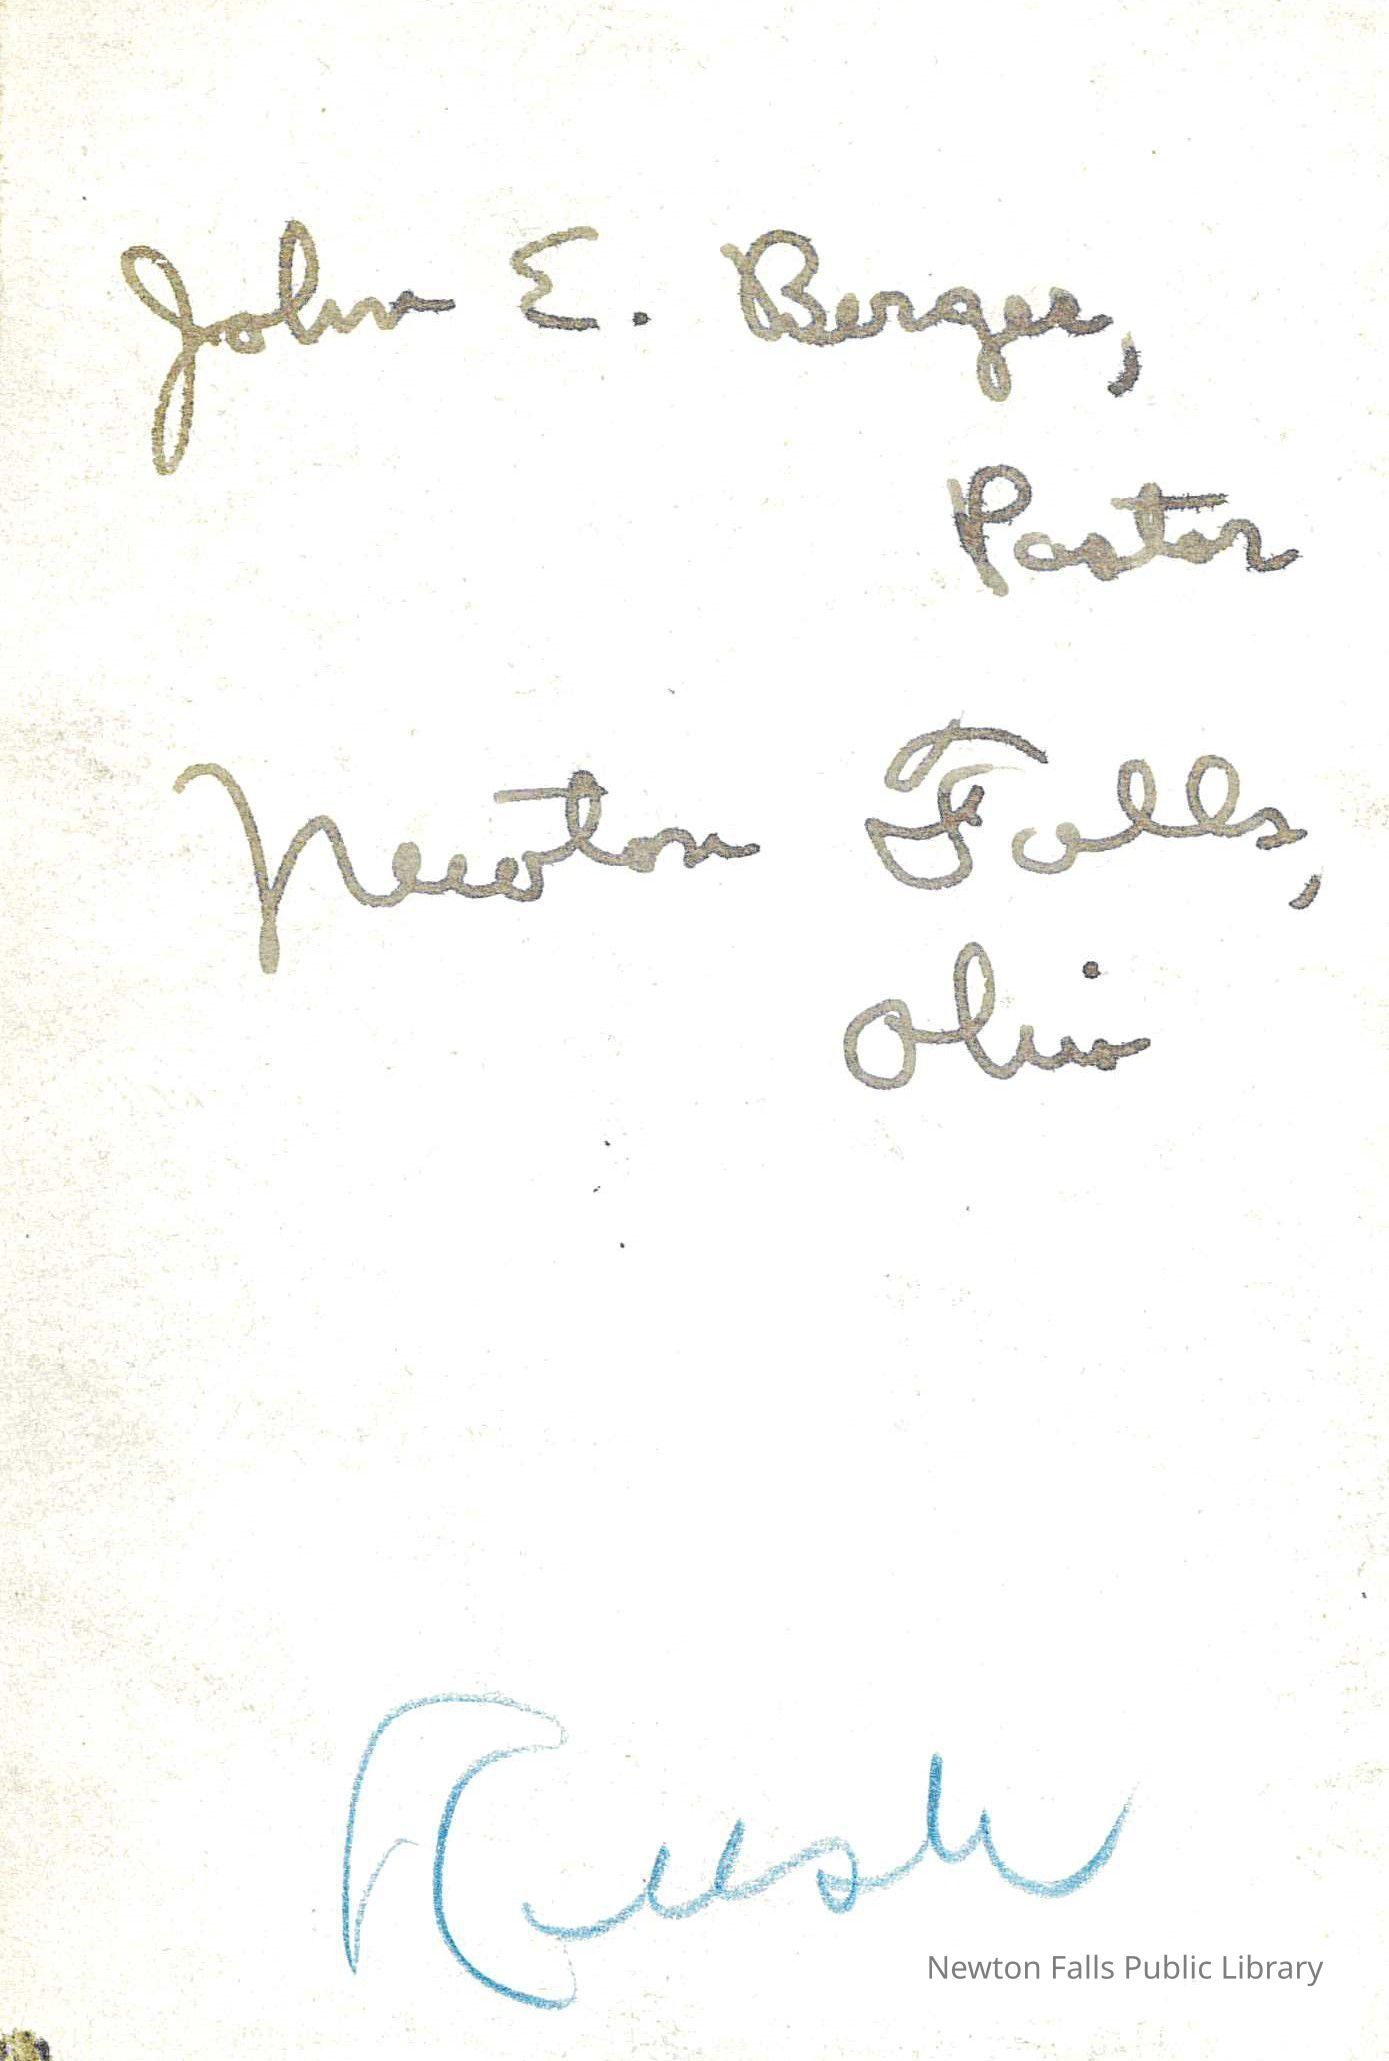 John E. Berger,
Pastor
Newton Falls,
Ohio
Rush
Newton Falls Public Library